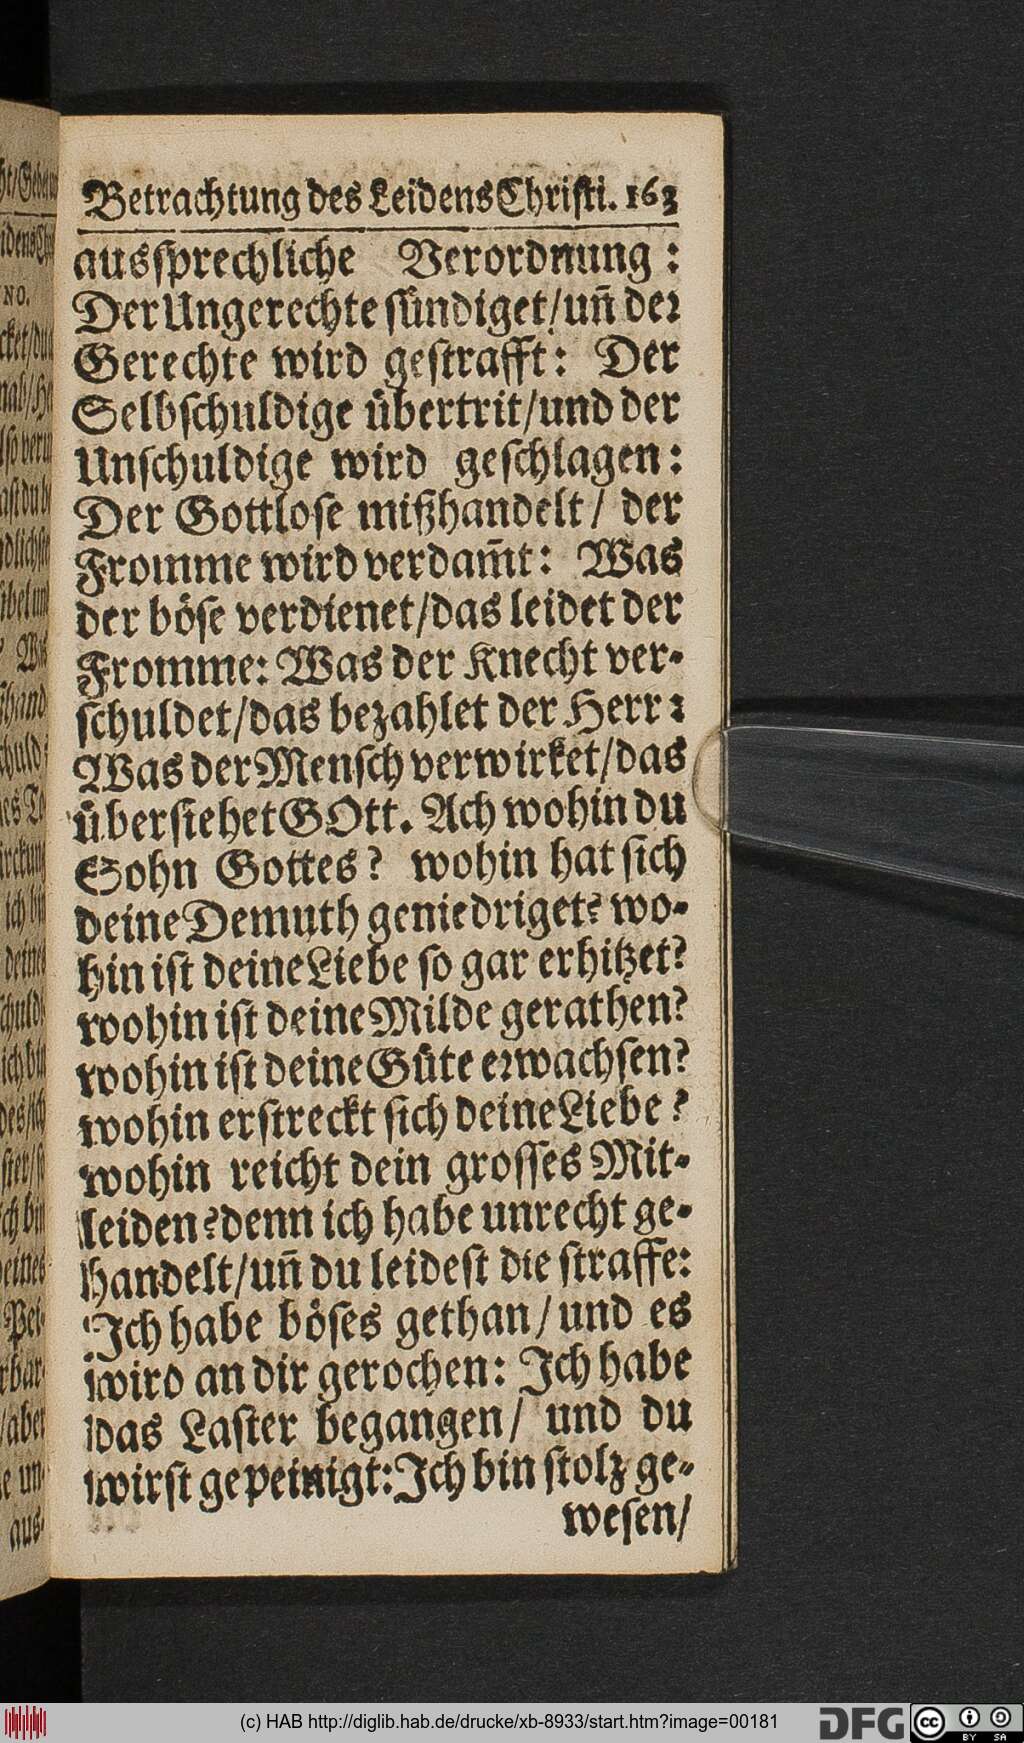 Betrachtung des Leidens Christi. 163
aussprechliche Verordnung:
Der Ungerechte sündiget/uñ der
Gerechte wird gestrafft: Der
Selbschuldige übertrit/und der
Unschuldige wird geschlagen:
Der Gottlose mißhandelt/ der
Fromme wird verdam̃t: Was
der böse verdienet/das leidet der
Fromme: Was der Knecht ver-
schuldet/das bezahlet der Herr:
Was der Mensch verwirket/das
übersiehet GOtt. Ach wohin du
Sohn Gottes? wohin hat sich
deine Demuth geniedriget? wo-
hin ist deine Liebe so gar erhitzet?
wohin ist deine Milde gerathen?
wohin ist deine Güte erwachsen?
wohin erstreckt sich deine Liebe?
wohin reicht dein grosses Mit-
leiden? denn ich habe unrecht ge-
handelt/uñ du leidest die straffe:
Ich habe böses gethan/und es
wird an dir gerochen: Ich habe
das Laster begangen/ und du
wirst gepeinigt: Ich bin stolz ge-
wesen/
(c) HAB http://diglib.hab.de/drucke/xb-8933/start.htm?image=00181
DFG
cc
BY SA